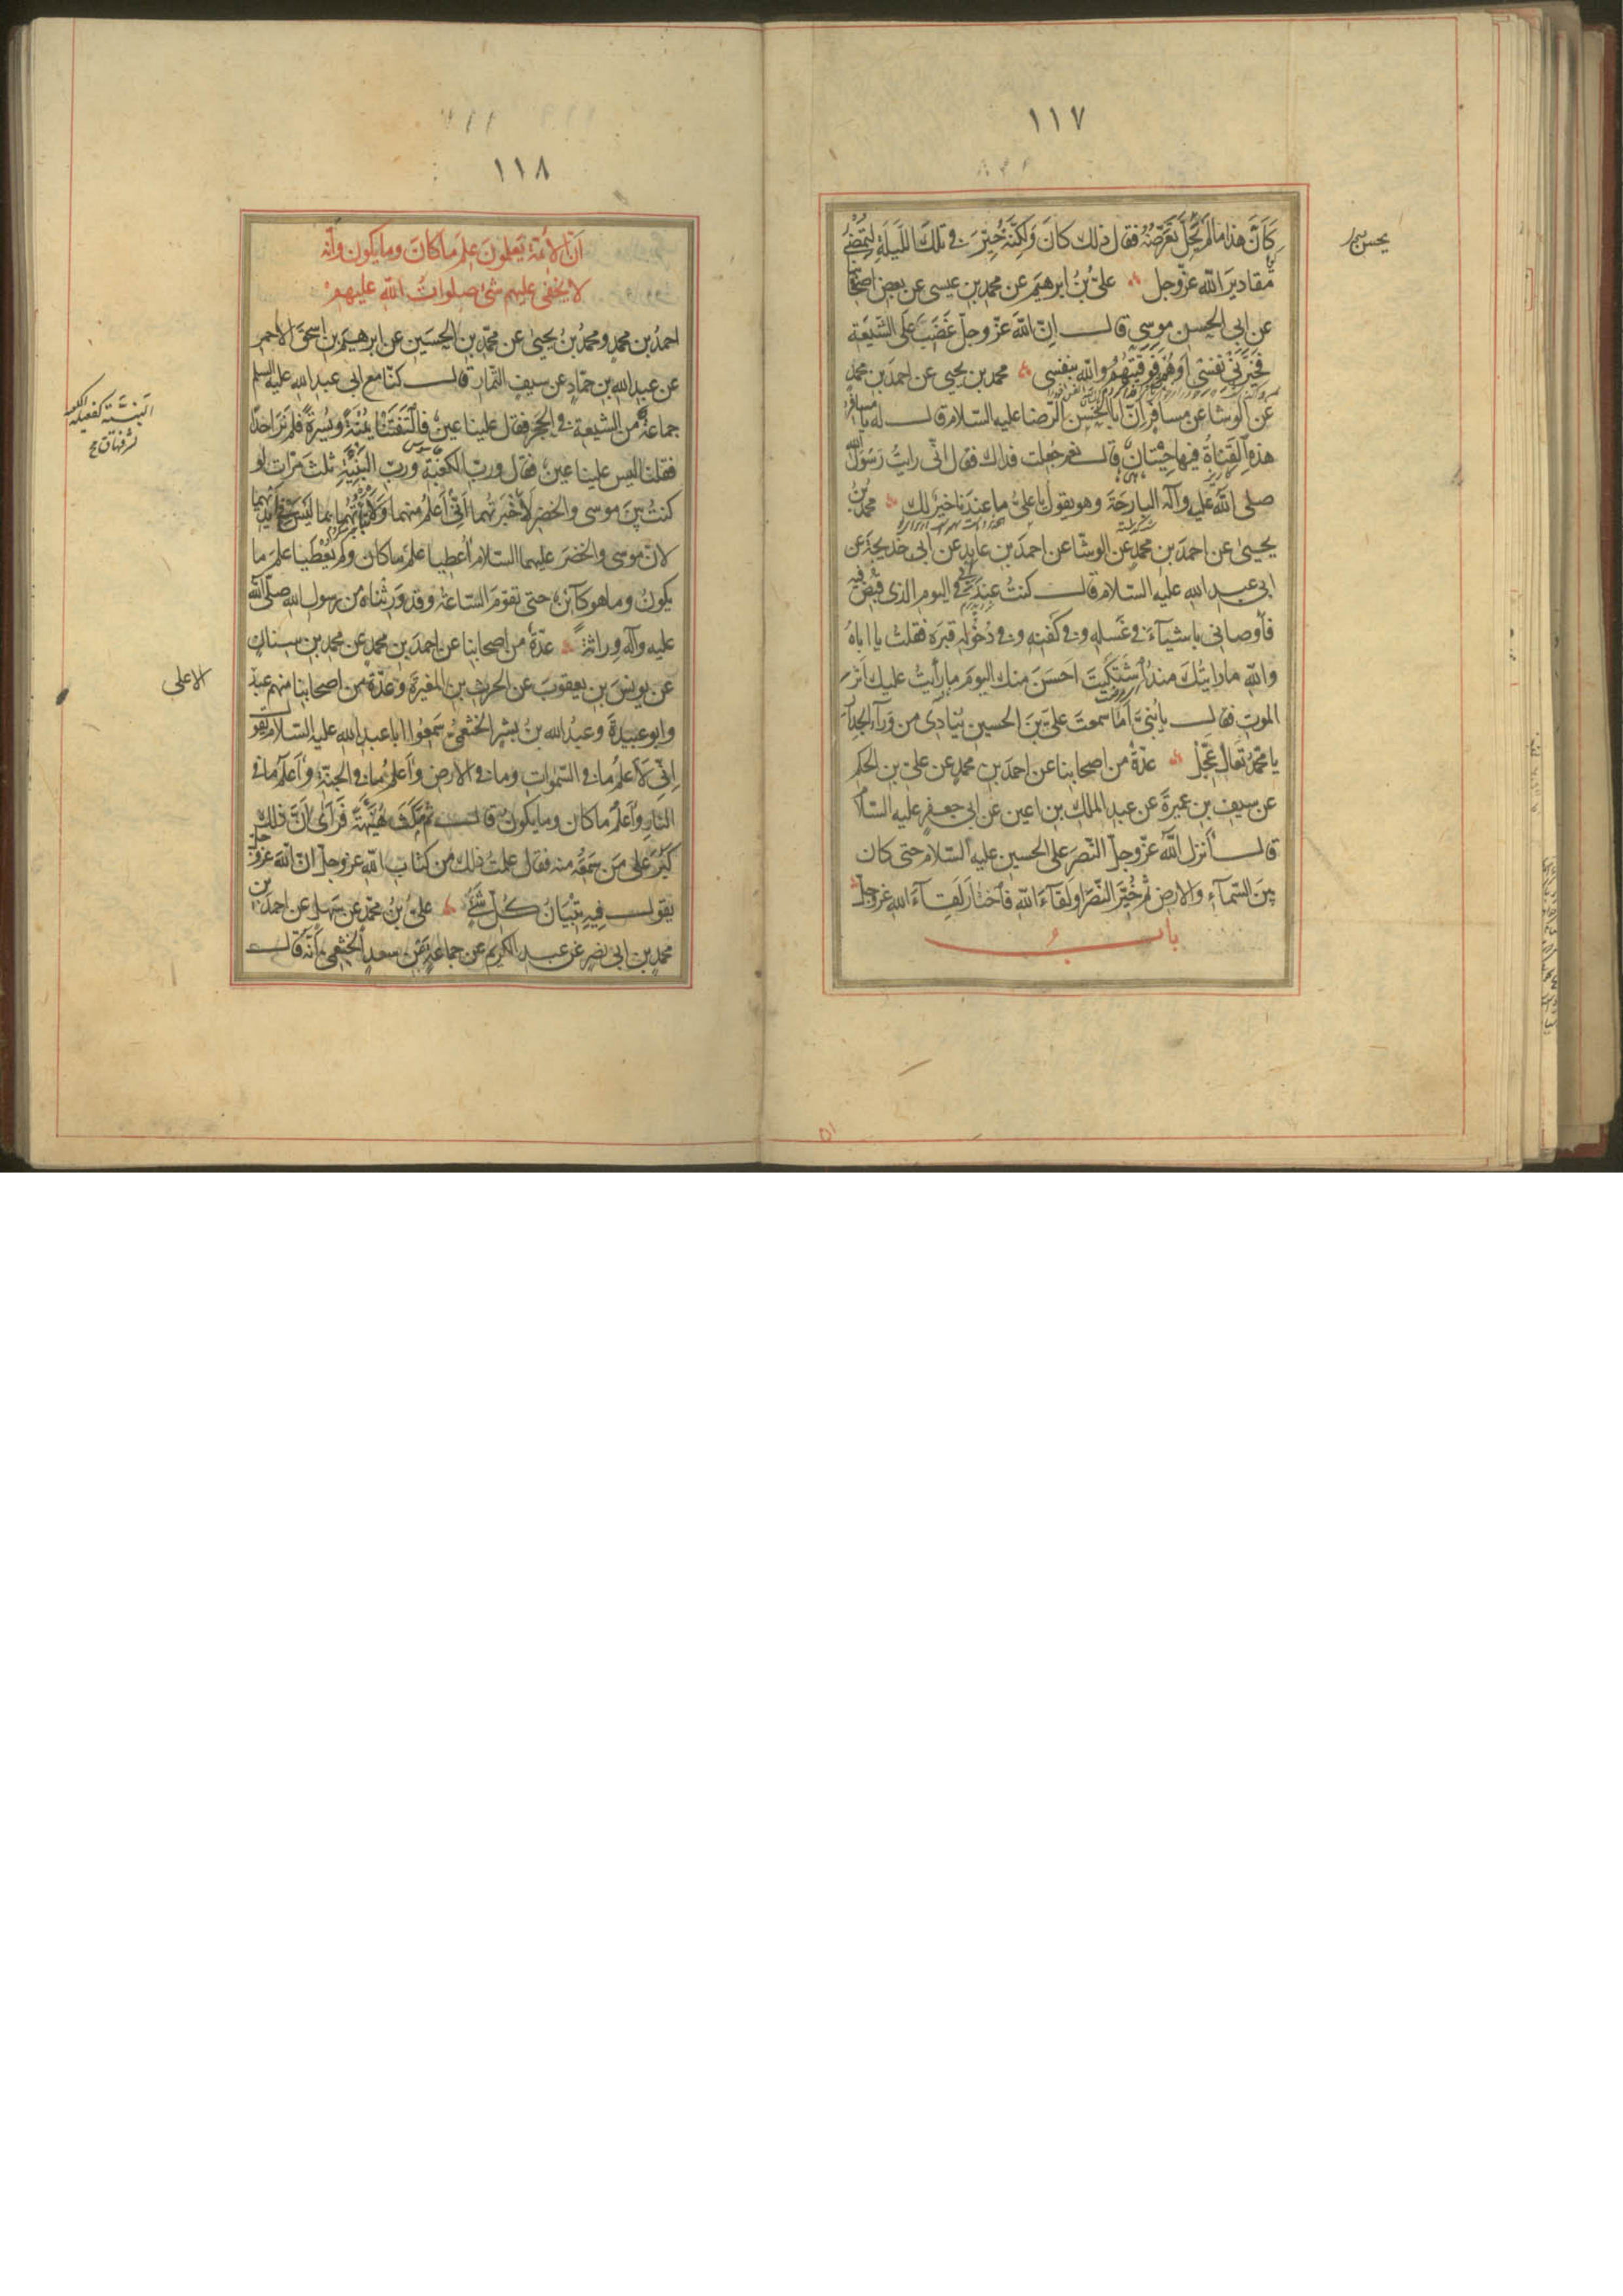 ١١٧
كَانَ هذا مما لم يَحِلّ تَعَرُّضُهُ فقال ذلك كانَ وَلكِنَّهُ خُيِّرَ في تلكَ اللّيلَةِ لِتَمْضِيَ
مقاديرَ الله عزّوجل علىّ بن ابرهيم عن محمد بن عيسى عن بعض اصحابنا
عن ابى الحسن موسى قال انّ الله عزّ وجلّ غَضِبَ عَلَى الشّيعَةِ
فَخَيَّرَنى نفسى اَوْ هُمْ فَوَقَيْتُهُمْ والله بنفسى محمد بن يحيى عن احمد بن محمد
عن الوشا عن مسافر انّ ابا الحسن الرّضا عليه السّلام قال له يا مسافر
هذه القَناةُ فيها حِيْتانٌ قال نعم جُعلت فداك فقال انّى رايتُ رَسُولَ الله
صلى الله عليه وآله البارحَةَ وهو يقول يا علىّ ما عندَنا خيرٌ لك محمد بن
يحيىٰ عن احمدَ بن محمدٍ عن الوشّا عن احمدَ بن عايد عن ابى خديجة عن
ابى عبد الله عليه السّلام قال كنتُ عِندَ ابى فى اليوم الذى قُبِضَ فيه
فأوصانى باشيآءَ فى غَسله وفى كفنه وفى دُخُوله قبرَه فقلتُ يا اباهُ
والله ما رايتُكَ منذُ اشتَكَيتَ احسَنَ منك اليومَ ما رأيتُ عليك اَثَر
الموت فقال يا بُنىّ اَما سمعتَ علىّ بنَ الحسين يُنادى من وَرآء الجدآر
يا محمّدُ تَعالَ عَجِّلْ عدّةٌ من اصحابنا عن احمدَ بن محمدٍ عن علىّ بن الحكم
عن سيف بن عميرةَ عن عبد الملك بن اعين عن ابى جعفرٍ عليه السّلام
قال أنزل اللهُ عزّوجلّ النّصرَ على الحسين عليه السّلام حتى كان
بينَ السّمآءِ والارض ثم خُيِّرَ النّصرَ او لقآءَ الله فاختارَ لقآءَ الله عزوجل
بابُ
١١٨
اَنّ الائمّة يَعلمونَ علمَ ما كانَ وما يكون واَنّه
لا يخفى عليهم شئ صلواتُ الله عليهم
احمدُ بن محمدٍ ومحمدُ بنُ يحيىٰ عن محمّد بن الحسَين عن ابرهيم بن اسحقَ الاحمر
عن عبد الله بن حمّادٍ عن سيف التّمار قال كنّا مع ابى عبد الله عليه السلم
جماعةٌ من الشيعة فى الحِجرِ فقال علينا عينٌ فالتَفَتْنا يَمْنَةً ويُسْرةً فلم نَرَ احدًا
فقلنا ليس علينا عينٌ فقال وربّ الكعبَة وربّ البَنِيّةِ ثلثَ مرّاتٍ لو
كنتُ بينَ موسى والخضر لأخبَرتُهما اَنّى اَعلمُ منهما وَلأنْبَأتُهُما بما ليسَ فى ايديهما
لانّ موسى والخضرَ عليهما السّلام اُعطِيا علمَ ما كان ولم يُعْطَيا علمَ ما
يكونُ وما هو كآئنٌ حتى تقومَ السّاعةُ وقد وَرِثناه من رسول الله صلى الله
عليه وآله وِراثةً عدّةٌ من اصحابنا عن احمدَ بن محمدٍ عن محمد بن سنان
عن يونسَ بن يعقوبَ عن الحرث بن المغيرَة وعدّةٍ من اصحابنا منهم عبد
الاعلى
وابو عبيدةَ وعبدُ الله بنُ بشرٍ الخثعمىّ سَمِعُوا ابا عبد الله عليه السّلام يقول
اِنّى لَاَعلمُ ما فى السّموات وما فى الارض واَعلمُ ما فى الجنّة واَعلمُ ما فى
النارِ واَعلمُ ما كان وما يكون قال ثم مكثَ هُنَيْئَةً فَرَأى اَنّ ذلك
كَبُرَ على مَن سَمِعَهُ منه فقال علمتُ ذلك من كتاب الله عزوجلّ انّ الله عزوجل
يقول فِيهِ تبْيَانُ كُلّ شَئٍ علىّ بنُ محمّدٍ عن سَهلٍ عن احمدَ بن
محمد بن ابى نصرٍ عن عبد الكريم عن جماعة بن سعدٍ الخثعمى اَنّه قال